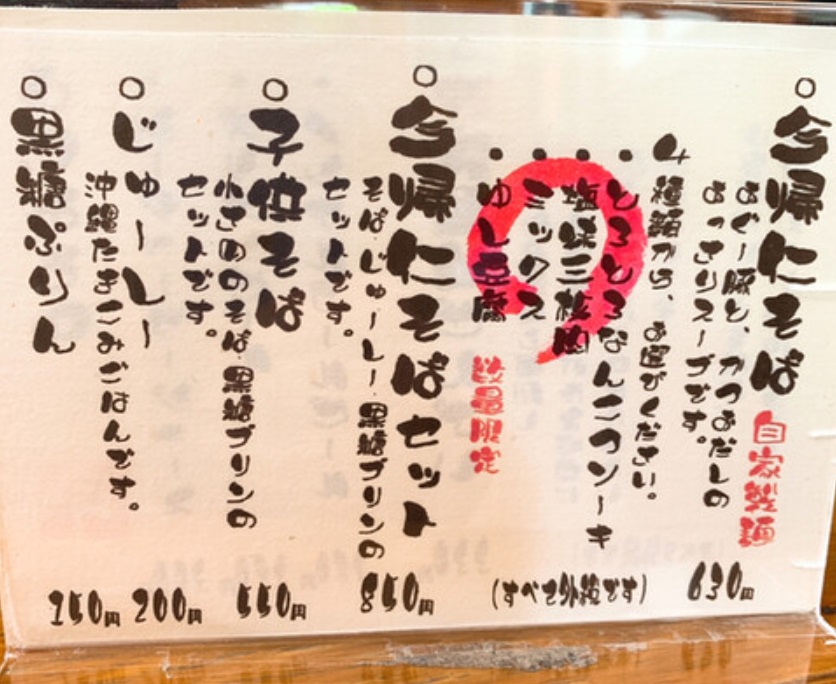 ○今帰仁そば 自家製麺
あぐー豚と、かつおだしの
あっさりスープです。
4種類から、お選びください。
・とろとろなんこつソーキ
・塩味三枚肉
・ミックス
・ゆし豆腐 数量限定
(すべて外税です)
630円
○今帰仁そばセット
そば・じゅーしー・黒糖プリンの
セットです。
850円
○子供そば
小さめのそば・黒糖プリンの
セットです。
550円
○じゅーしー
沖縄たきこみごはんです。
200円
○黒糖ぷりん
150円